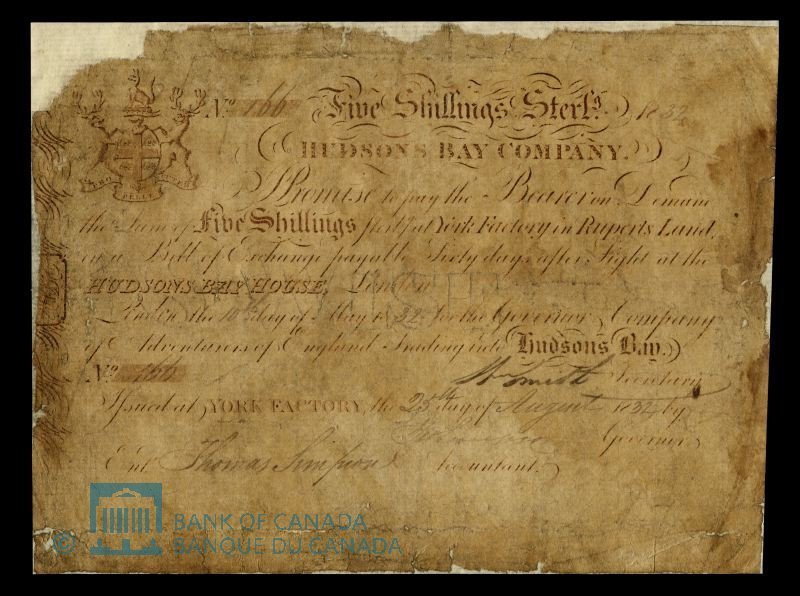 No. 166 Five Shillings Sterlg. 1832
HUDSONS BAY COMPANY.
PRO PELLE CUTEM
I Promise to pay the Bearer on Demand
the Sum of Five Shillings Sterlg. at York Factory in Ruperts Land,
in a Bill of Exchange payable Sixty days after Sight at the
HUDSONS BAY HOUSE London
London the 10th day of May 1832 For the Governor & Company
of Adventurers of England Trading into Hudsons Bay.
No. 166 Wm Smith Secretary
Issued at YORK FACTORY, the 25th day of August 1834 by
Governor
Entd. Thomas Simpson Accountant.
©
BANK OF CANADA
BANQUE DU CANADA